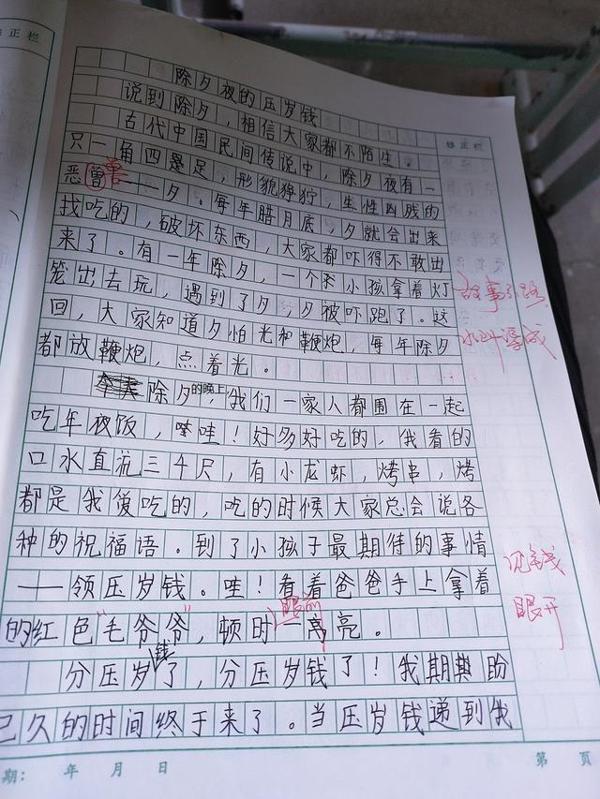 修正栏
正栏
除夕夜的压岁钱
说到除夕，相信大家都不陌生。
古代中国民间传说中，除夕夜有一
只一角四是足，形貌狰狞，生性凶残的
恶兽——夕。每年腊月底，夕就会出来
找吃的，破坏东西，大家都吓得不敢出
来了。有一年除夕，一个小孩拿着灯
笼出去玩，遇到了夕，夕被吓跑了。这
回，大家知道夕怕光和鞭炮，每年除夕
都放鞭炮，点着光。
故事引路
除夕的晚上，我们一家人都围在一起
吃年夜饭，哇！好多好吃的，我看的
口水直流三千尺，有小龙虾，烤串，烤
都是我爱吃的，吃的时候大家总会说各
种的祝福语。到了小孩子最期待的事情
——领压岁钱。哇！看着爸爸手上拿着
的红色"毛爷爷"，顿时眼前一亮。
见钱
眼开
分压岁钱了，分压岁钱了！我期盼
已久的时间终于来了。当压岁钱递到我
期： 年 月 日
第 页